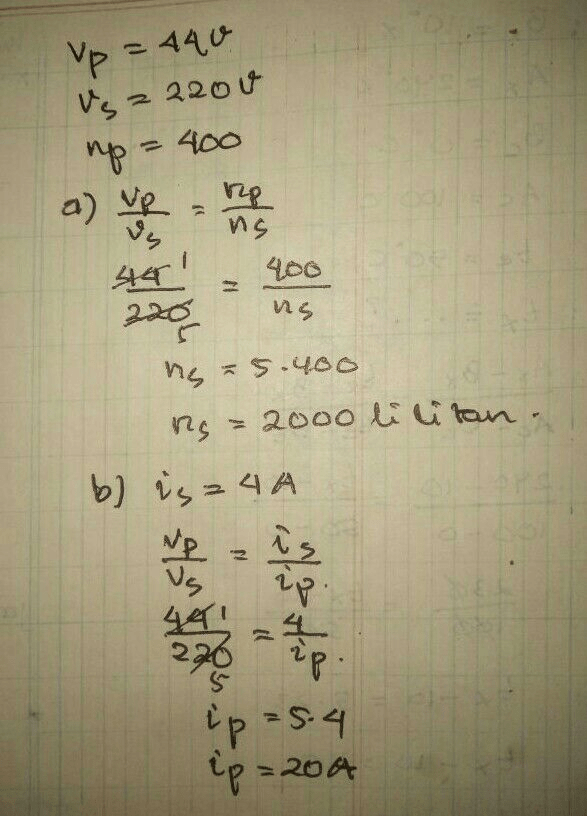 Vp = 44 V
Vs = 220 V
np = 400
a) Vp/Vs = np/ns
44 1/220 5 = 400/ns
ns = 5.400
ns = 2000 lilitan.
b) is = 4 A
Vp/Vs = is/ip.
44 1/220 5 = 4/ip.
ip = 5.4
ip = 20 A